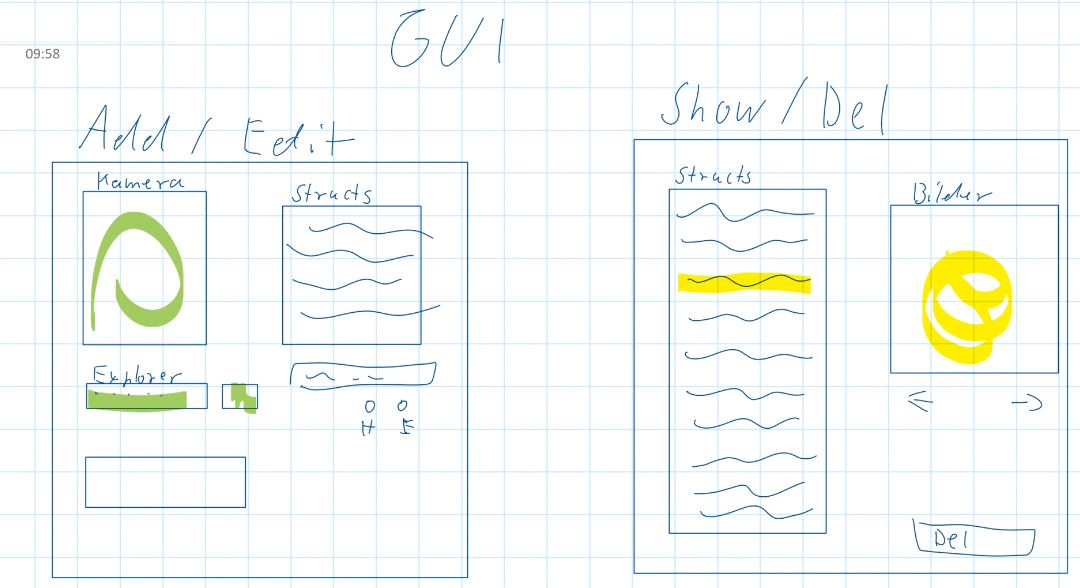 GUI
09:58
Add / Edit
Kamera
Structs
Explorer
H
Show / Del
Structs
Bilder
Del